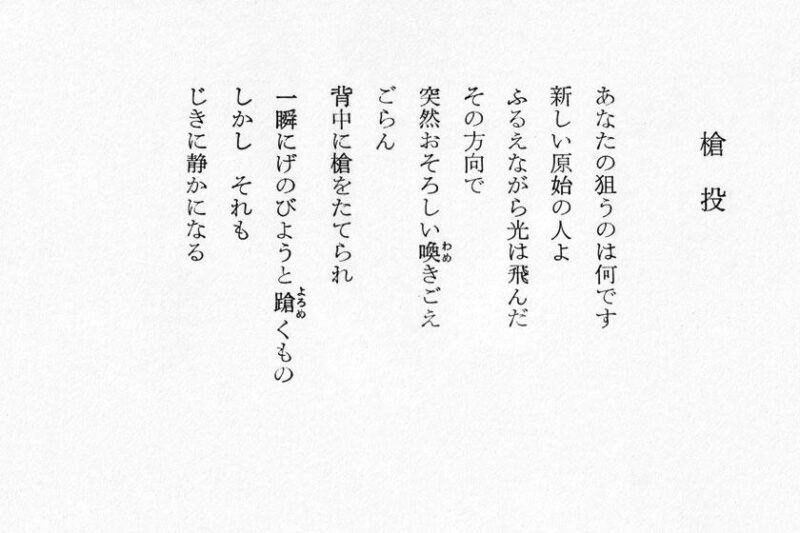 槍投
あなたの狙うのは何です
新しい原始の人よ
ふるえながら光は飛んだ
その方向で
突然おそろしい喚きごえ
わめ
ごらん
背中に槍をたてられ
一瞬にげのびようと蹌くもの
よろめ
しかし それも
じきに静かになる